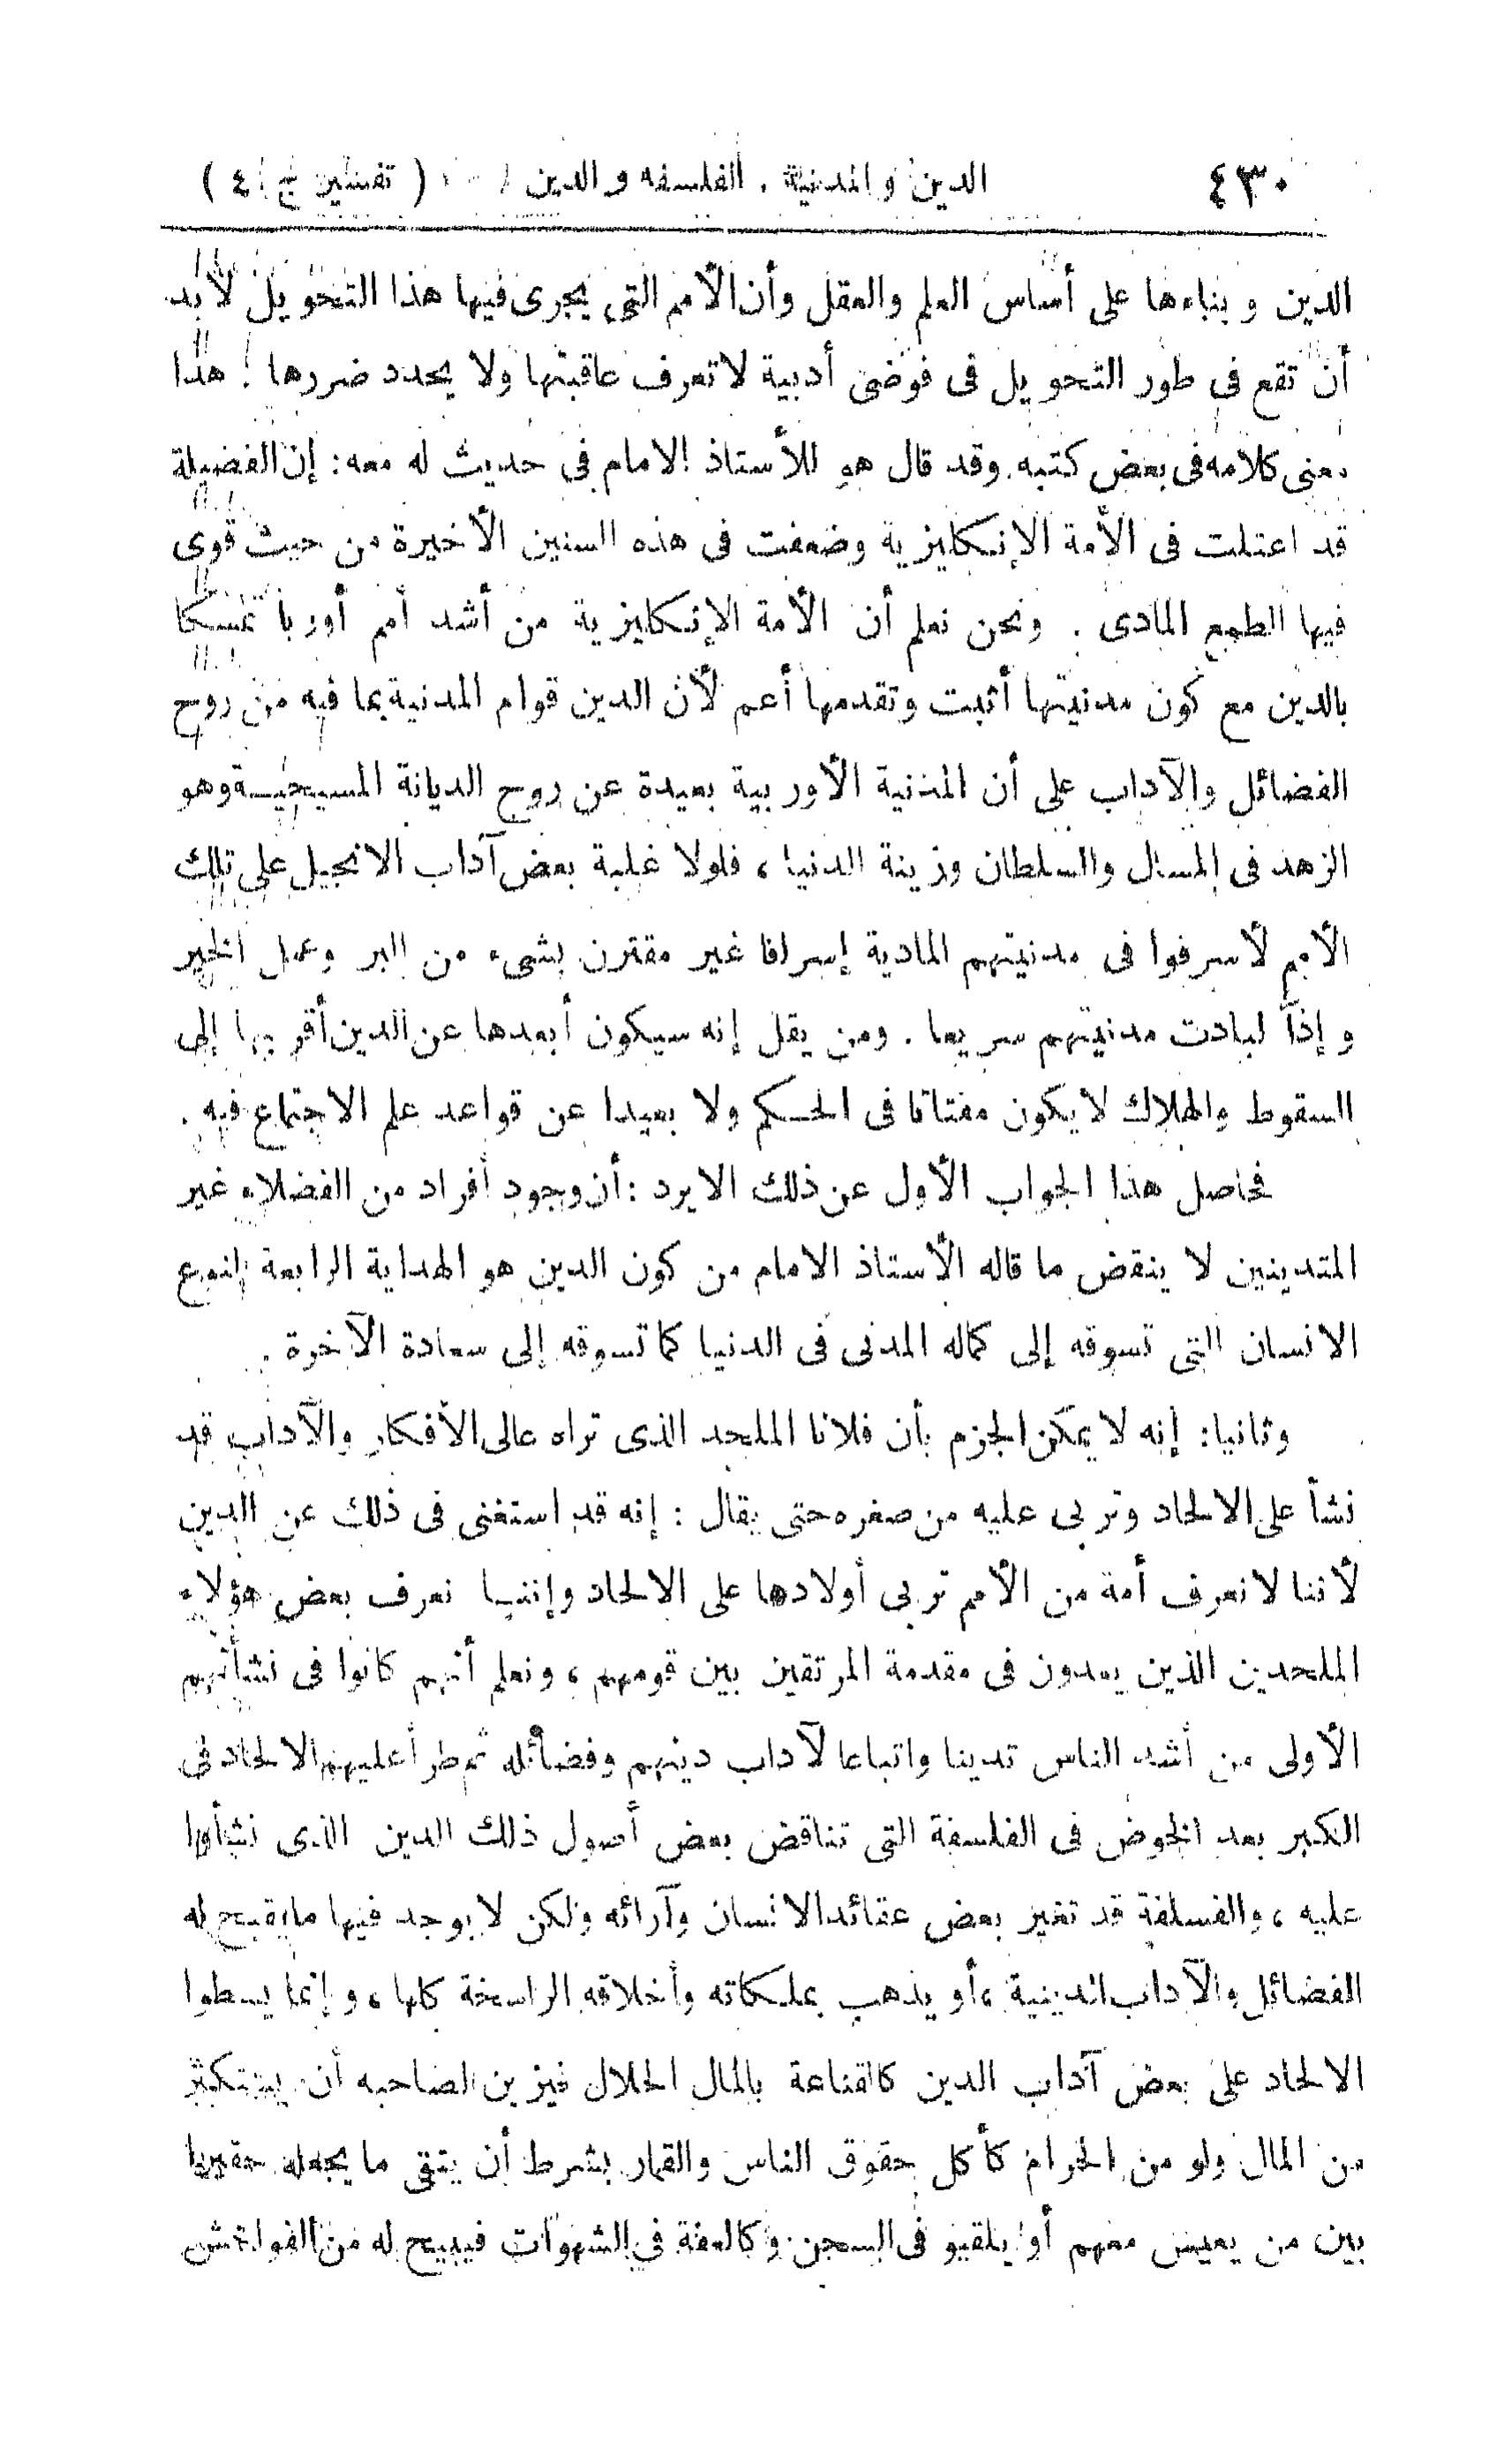 ٤٣٠ الدين والمدنية . الفلسفه والدين ( تفسير ج ٤ )
الدين وبناءها على أساس العلم والعقل وأن الأمم التى يجرى فيها هذا التحويل لا بد
أن تقع فى طور التحويل فى فوضى أدبية لا تعرف عاقبتها ولا يحدد ضررها ! هذا
معنى كلامه فى بعض كتبه . وقد قال هو للأستاذ الامام فى حديث له معه : إن الفضيلة
قد اعتلت فى الأمة الإنكليزية وضعفت فى هذه السنين الأخيرة من حيث قوى
فيها الطمع المادى . ونحن نعلم أن الأمة الإنكليزية من أشد أمم أوربا تمسكا
بالدين مع كون مدنيتها أثبت وتقدمها أعم لأن الدين قوام المدنية بما فيه من روح
الفضائل والآداب على أن المدنية الأوربية بعيدة عن روح الديانة المسيحيــة وهو
الزهد فى المـال والسلطان وزينة الدنيا ، فلولا غلبة بعض آداب الانجيل على تلك
الأمم لأسرفوا فى مدنيتهم المادية إسرافا غير مقترن بشىء من البر وعمل الخير
وإذاً لبادت مدنيتهم سريعا . ومن يقل إنه سيكون أبعدها عن الدين أقربها إلى
السقوط والهلاك لا يكون مفتاتا فى الحكم ولا بعيدا عن قواعد علم الاجتماع فيه .
فحاصل هذا الجواب الأول عن ذلك الايرد : أن وجود أفراد من الفضلاء غير
المتدينين لا ينقض ما قاله الأستاذ الامام من كون الدين هو الهداية الرابعة لنوع
الانسان التى تسوقه إلى كماله المدنى فى الدنيا كما تسوقه إلى سعادة الآخرة .
وثانيا : إنه لا يمكن الجزم بأن فلانا الملحد الذى تراه عالى الأفكار والآداب قد
نشأ على الالحاد وتربى عليه من صغره حتى يقال : إنه قد استغنى فى ذلك عن الدين
لأننا لا نعرف أمة من الأمم تربى أولادها على الالحاد وإننا نعرف بعض هؤلاء
الملحدين الذين يعدون فى مقدمة المرتقين بين قومهم ، ونعلم أنهم كانوا فى نشأتهم
الأولى من أشد الناس تدينا واتباعا لآداب دينهم وفضائله ثم طرأ عليهم الالحاد فى
الكبر بعد الخوض فى الفلسفة التى تناقض بعض أصول ذلك الدين الذى نشأوا
عليه ، والفسلفة قد تغير بعض عقائد الانسان وآرائه ولكن لا يوجد فيها ما يقبح له
الفضائل والآداب الدينية ، أو يذهب بملكاته وأخلاقه الراسخة كلها ، وإنما يسطوا
الالحاد على بعض آداب الدين كالقناعة بالمال الحلال فيزين لصاحبه أن يستكثر
من المال ولو من الحرام كأكل حقوق الناس والقمار بشرط أن يتقى ما يجعله حقيرا
بين من يعيش معهم أو يلقيه فى السجن وكالعفة فى الشهوات فيبيح له من الفواحش